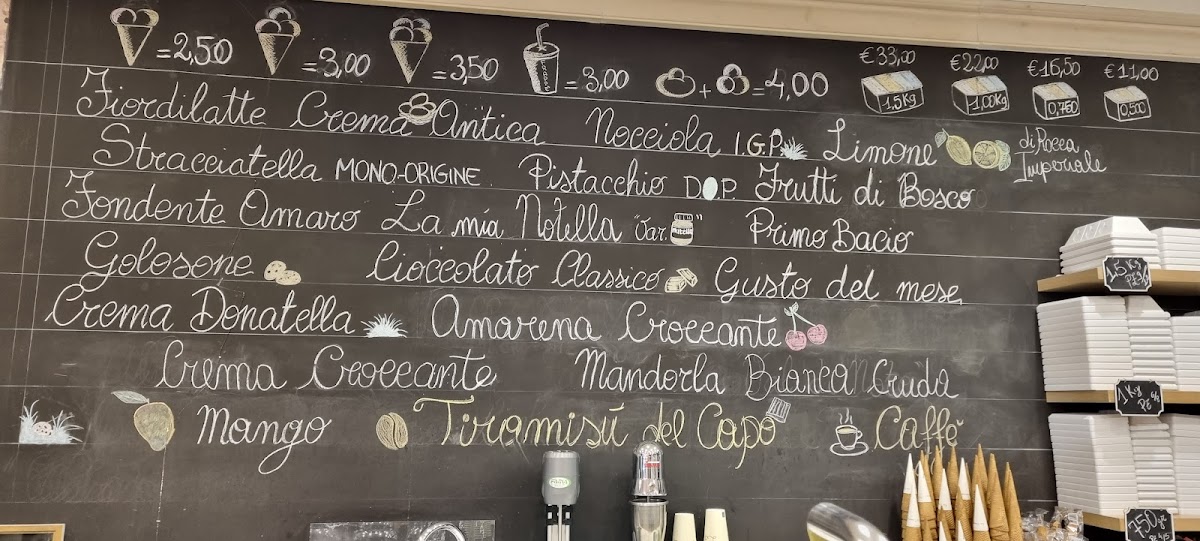 =2,50 =3,00 =3,50 =3,00 + =4,00 €33,00 €22,00 €16,50 €11,00
1,5Kg 1,00Kg 0,750 0,500
Fiordilatte Crema Antica Nocciola I.G.P. Limone di Rocca Imperiale
Stracciatella MONO-ORIGINE Pistacchio D.O.P. Frutti di Bosco
Fondente Amaro La mia Notella "Var. nutella" Primo Bacio
Golosone Cioccolato Classico Gusto del mese
Crema Donatella Amarena Croccante
Crema Croccante Mandorla Bianca Cruda
Mango Tiramisú del Capo Caffè
1,5 Kg
1 Kg
750